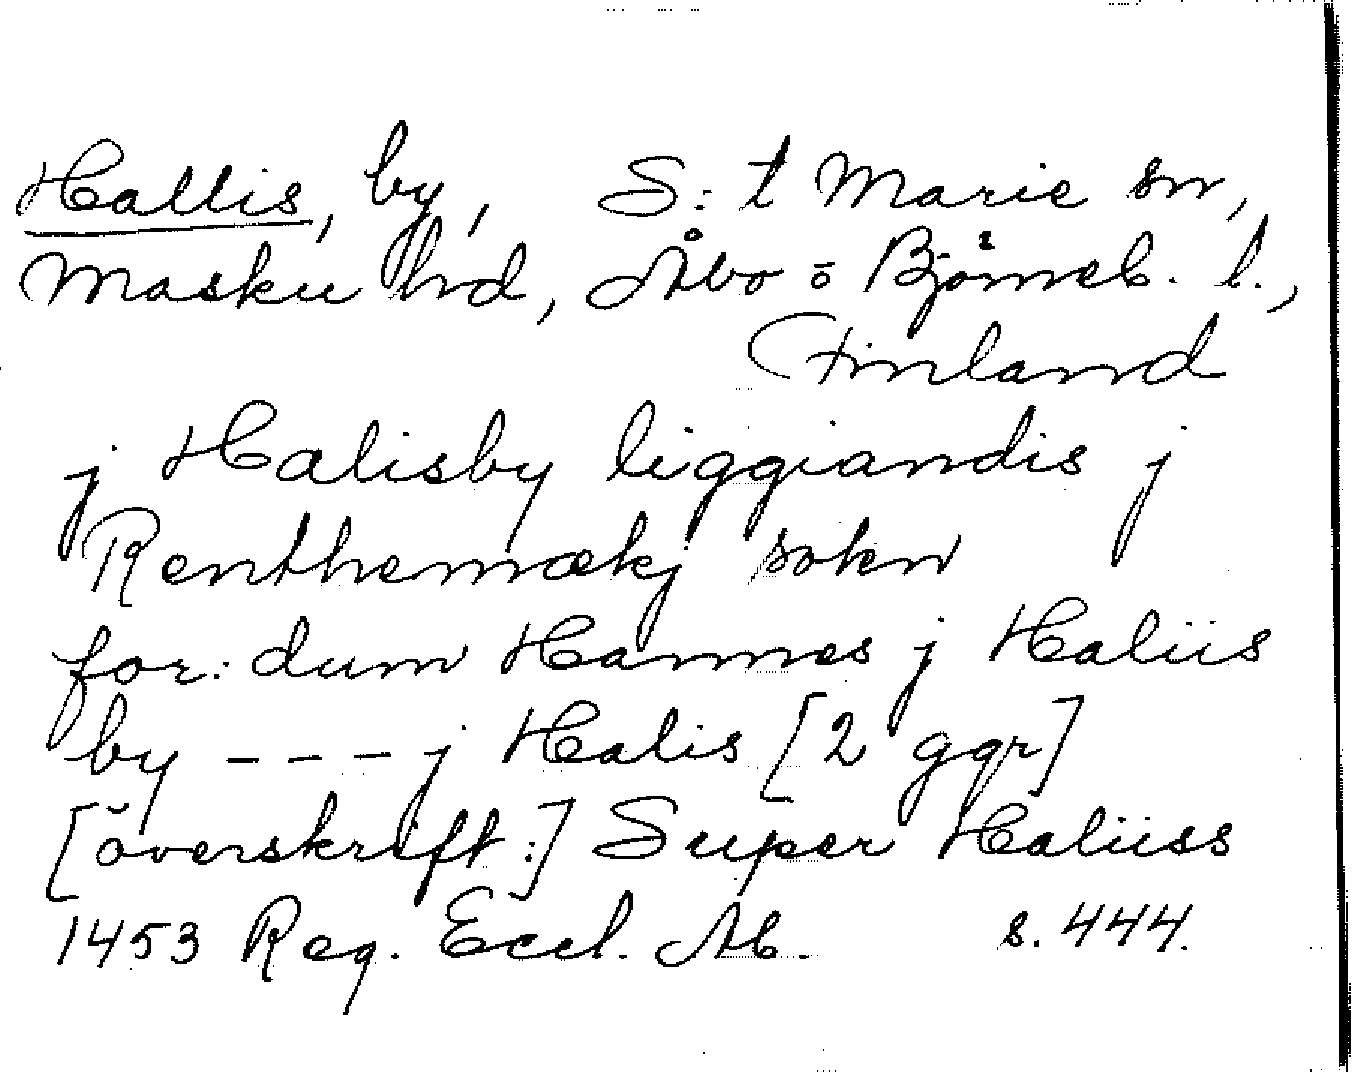 Hallis, by, S:t Marie sn,
Masku hd, Åbo o Björneb. l.,
Finland
j Halisby liggiandis j
Renthemækj sokn
for: dum Hannes j Haliis
by --- j Halis [2 ggr]
[överskrift:] Super Haliiss
1453 Reg. Eccl. Ab. s. 444.